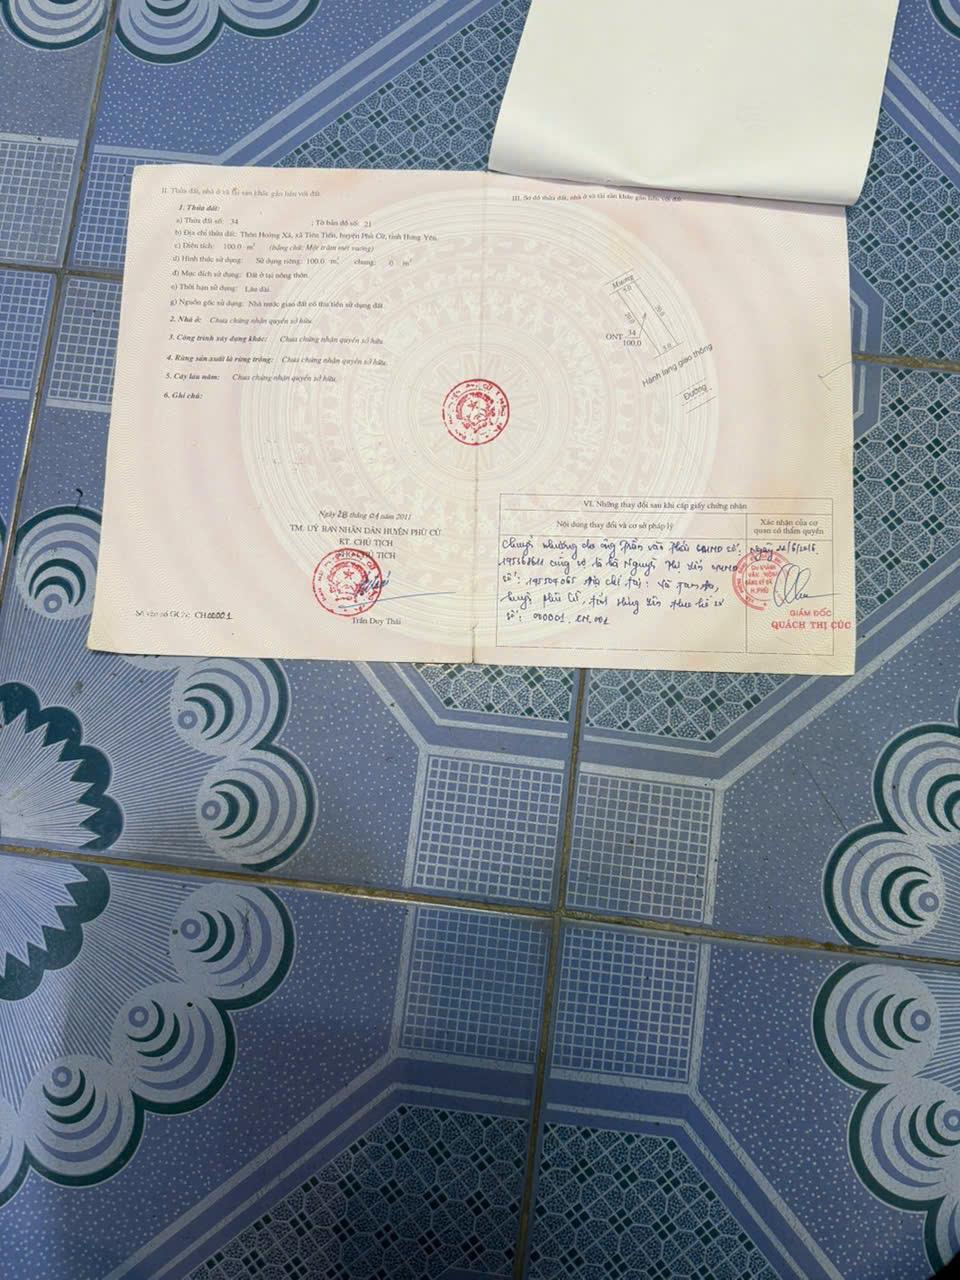 II. Thửa đất, nhà ở và tài sản khác gắn liền với đất
1. Thửa đất:
a) Thửa đất số: 34 ; Tờ bản đồ số: 21
b) Địa chỉ thửa đất: Thôn Hoàng Xá, xã Tiên Tiến, huyện Phù Cừ, tỉnh Hưng Yên.
c) Diện tích: 100.0 m² (bằng chữ: Một trăm mét vuông)
d) Hình thức sử dụng: Sử dụng riêng: 100.0 m², chung: 0 m²
đ) Mục đích sử dụng: Đất ở tại nông thôn.
e) Thời hạn sử dụng: Lâu dài.
g) Nguồn gốc sử dụng: Nhà nước giao đất có thu tiền sử dụng đất.
2. Nhà ở: Chưa chứng nhận quyền sở hữu.
3. Công trình xây dựng khác: Chưa chứng nhận quyền sở hữu.
4. Rừng sản xuất là rừng trồng: Chưa chứng nhận quyền sở hữu.
5. Cây lâu năm: Chưa chứng nhận quyền sở hữu.
6. Ghi chú:
Ngày 28 tháng 04 năm 2011
TM. UỶ BAN NHÂN DÂN HUYỆN PHÙ CỪ
KT. CHỦ TỊCH
CHỦ TỊCH
Trần Duy Thái
Số vào sổ GCN: CH00001
III. Sơ đồ thửa đất, nhà ở và tài sản khác gắn liền với đất
Mương
5.0
20.0
20.0
ONT 34
100.0
5.0
Hành lang giao thông
Đường
VI. Những thay đổi sau khi cấp giấy chứng nhận
Nội dung thay đổi và cơ sở pháp lý
Xác nhận của cơ quan có thẩm quyền
Chuyển nhượng cho ông Trần Văn số:
cùng vợ là bà Nguyễn Thị
số: Địa chỉ tại: Xã Tam Đa,
huyện Phù Cừ, tỉnh Hưng Yên theo hồ sơ
số: 000001.CN.001
Ngày 22/6/2016
GIÁM ĐỐC
QUÁCH THỊ CÚC